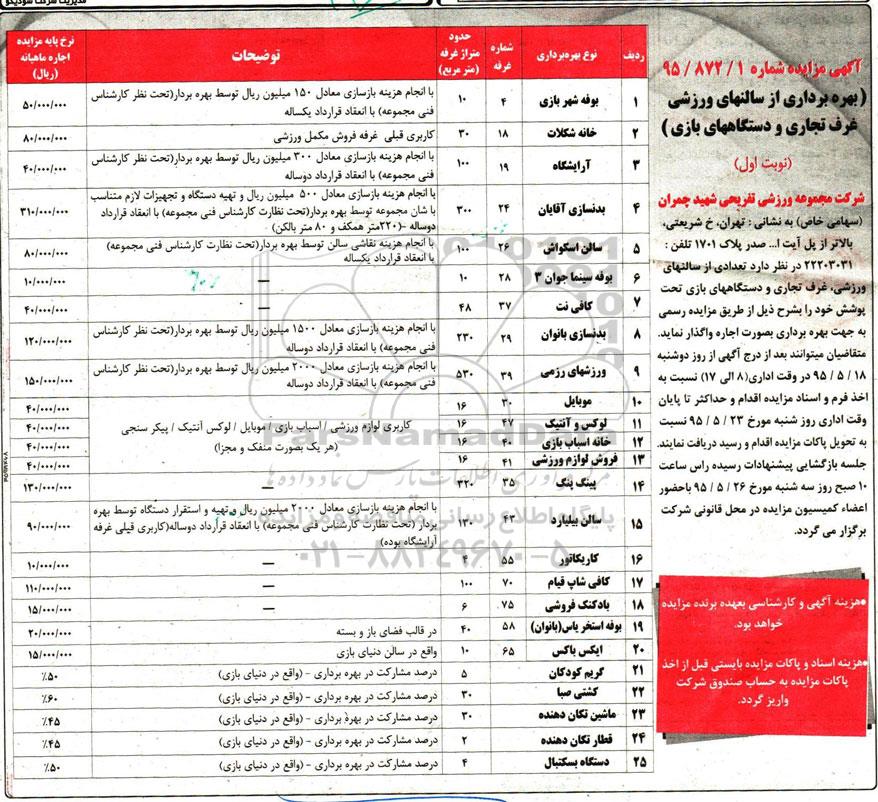 مدیریت شرکت سودیکو
آگهی مزایده شماره ۱ / ۸۷۲ / ۹۵
( بهره برداری از سالنهای ورزشی
غرف تجاری و دستگاههای بازی )
(نوبت اول)
شرکت مجموعه ورزشی تفریحی شهید چمران
(سهامی خاص) به نشانی : تهران، خ شریعتی،
بالاتر از پل آیت ا... صدر پلاک ۱۷۰۱ تلفن :
۲۲۲۰۳۰۳۱ در نظر دارد تعدادی از سالنهای
ورزشی، غرف تجاری و دستگاههای بازی تحت
پوشش خود را بشرح ذیل از طریق مزایده رسمی
به جهت بهره برداری بصورت اجاره واگذار نماید.
متقاضیان میتوانند بعد از درج آگهی از روز دوشنبه
۱۸ / ۵ / ۹۵ در وقت اداری(۸ الی ۱۷) نسبت به
اخذ فرم و اسناد مزایده اقدام و حداکثر تا پایان
وقت اداری روز شنبه مورخ ۲۳ / ۵ / ۹۵ نسبت
به تحویل پاکات مزایده اقدام و رسید دریافت نمایند.
جلسه بازگشایی پیشنهادات رسیده راس ساعت
۱۰ صبح روز سه شنبه مورخ ۲۶ / ۵ / ۹۵ باحضور
اعضاء کمیسیون مزایده در محل قانونی شرکت
برگزار می گردد.
●هزینه آگهی و کارشناسی بعهده برنده مزایده
خواهد بود.
●هزینه اسناد و پاکات مزایده بایستی قبل از اخذ
پاکات مزایده به حساب صندوق شرکت
واریز گردد.
ردیف نوع بهره‌برداری شماره غرفه حدود متراژ غرفه (متر مربع) توضیحات نرخ پایه مزایده اجاره ماهیانه (ریال)
۱ بوفه شهر بازی ۴ ۱۰ با انجام هزینه بازسازی معادل ۱۵۰ میلیون ریال توسط بهره بردار(تحت نظر کارشناس ۵۰/۰۰۰/۰۰۰
فنی مجموعه) با انعقاد قرارداد یکساله
۲ خانه شکلات ۱۸ ۳۰ کاربری قبلی غرفه فروش مکمل ورزشی ۸۰/۰۰۰/۰۰۰
۳ آرایشگاه ۱۹ ۱۰۰ با انجام هزینه بازسازی معادل ۳۰۰ میلیون ریال توسط بهره بردار(تحت نظر کارشناس ۴۰/۰۰۰/۰۰۰
فنی مجموعه) با انعقاد قرارداد دوساله
۴ بدنسازی آقایان ۲۴ ۳۰۰ با انجام هزینه بازسازی معادل ۵۰۰ میلیون ریال و تهیه دستگاه و تجهیزات لازم متناسب ۳۱۰/۰۰۰/۰۰۰
با شان مجموعه توسط بهره بردار(تحت نظارت کارشناس فنی مجموعه) با انعقاد قرارداد
دوساله -(۲۲۰متر همکف و ۸۰ متر بالکن)
۵ سالن اسکواش ۲۶ ۱۰۰ با انجام هزینه نقاشی سالن توسط بهره بردار(تحت نظارت کارشناس فنی مجموعه) ۸۰/۰۰۰/۰۰۰
با انعقاد قرارداد یکساله
۶ بوفه سینما جوان ۳ ۲۸ ۱۰ — ۱۰/۰۰۰/۰۰۰
۷ کافی نت ۳۷ ۴۸ — ۴۰/۰۰۰/۰۰۰
۸ بدنسازی بانوان ۲۹ ۲۳۰ با انجام هزینه بازسازی معادل ۱۵۰۰ میلیون ریال توسط بهره بردار(تحت نظر کارشناس ۱۲۰/۰۰۰/۰۰۰
فنی مجموعه) با انعقاد قرارداد دوساله
۹ ورزشهای رزمی ۳۹ ۵۳۰ با انجام هزینه بازسازی معادل ۲۰۰۰ میلیون ریال توسط بهره بردار(تحت نظر کارشناس ۱۵۰/۰۰۰/۰۰۰
فنی مجموعه) با انعقاد قرارداد دوساله
۱۰ موبایل ۳۰ ۱۶ ۴۰/۰۰۰/۰۰۰
۱۱ لوکس و آنتیک ۴۷ ۱۶ کاربری لوازم ورزشی / اسباب بازی / موبایل / لوکس آنتیک / پیکر سنجی ۴۰/۰۰۰/۰۰۰
۱۲ خانه اسباب بازی ۴۰ ۱۶ (هر یک بصورت منفک و مجزا) ۴۰/۰۰۰/۰۰۰
۱۳ فروش لوازم ورزشی ۴۱ ۱۶ ۴۰/۰۰۰/۰۰۰
۱۴ پینگ پنگ ۳۵ ۳۲۰ — ۱۳۰/۰۰۰/۰۰۰
۱۵ سالن بیلیارد ۴۳ ۱۳۰ با انجام هزینه بازسازی معادل ۲۰۰۰ میلیون ریال و تهیه و استقرار دستگاه توسط بهره ۹۰/۰۰۰/۰۰۰
بردار (تحت نظارت کارشناس فنی مجموعه) با انعقاد قرارداد دوساله(کاربری قبلی غرفه
آرایشگاه بوده)
۱۶ کاریکاتور ۵۵ ۴ — ۱۰/۰۰۰/۰۰۰
۱۷ کافی شاپ قیام ۷۰ ۱۰۰ — ۱۱۰/۰۰۰/۰۰۰
۱۸ بادکنک فروشی ۷۵ ۶ — ۱۵/۰۰۰/۰۰۰
۱۹ بوفه استخر یاس(بانوان) ۵۸ ۴۰ در قالب فضای باز و بسته ۲۰/۰۰۰/۰۰۰
۲۰ ایکس باکس ۶۵ ۱۰ واقع در سالن دنیای بازی ۱۵/۰۰۰/۰۰۰
۲۱ گریم کودکان ۵ درصد مشارکت در بهره برداری - (واقع در دنیای بازی) ٪۵۰
۲۲ کشتی صبا ۳۰ درصد مشارکت در بهره برداری - (واقع در دنیای بازی) ٪۶۰
۲۳ ماشین تکان دهنده ۳۰ درصد مشارکت در بهره برداری - (واقع در دنیای بازی) ٪۴۵
۲۴ قطار تکان دهنده ۲ درصد مشارکت در بهره برداری - (واقع در دنیای بازی) ٪۴۵
۲۵ دستگاه بسکتبال ۴ درصد مشارکت در بهره برداری - (واقع در دنیای بازی) ٪۵۰
ParsNamadData
پایگاه اطلاع رسانی
۰۲۱-۸۸۳۴۹۶۷۰-۵